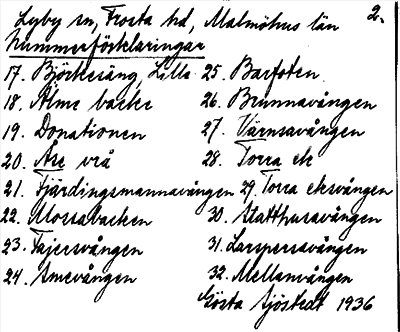 Lyby sn, Frosta hd, Malmöhus län 2.
Nummerförklaringar
17. Björkeräng, Lilla
18. Alme backe
19. Donationen
20. Åre vrå
21. Fjärdingsmannavången
22. Mossabacken
23. Fajersvången
24. Amevången
25. Barfoten
26. Brunnavången
27. Värnsavången
28. Torra ek
29. Torra eksvången
30. Statthusavången
31. Larspersavången
32. Mellanvången
Gösta Sjöstedt 1936